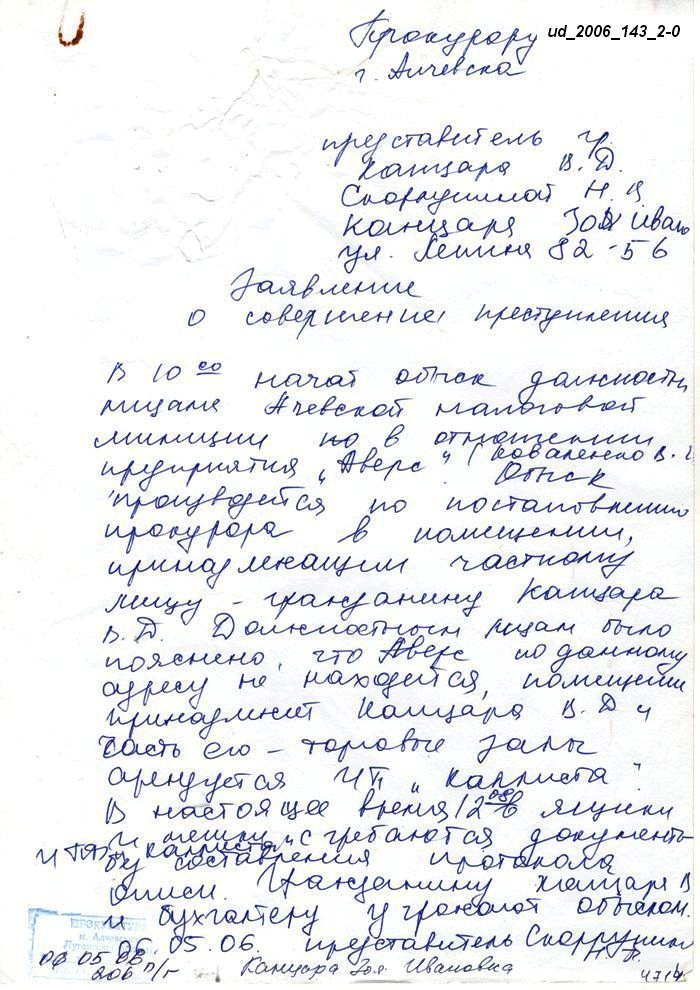 Прокурору
ud_2006_143_2-0
г. Алчевска
представитель гр.
Канцара В.Д.
Канцара Зоя Ивано
ул. Ленина 82-56
Заявление
о совершение преступления
В 10 со начат обыск должностн
лицами Ачевской налоговой
милиции но в отношении
предприятия „Аверс" (Коваленко В.
Обыск
производется по постановлению
прокурора в помещении,
принадлежащем частному
лицу - гражданину Канцара
В.Д. Должностным лицам было
пояснено, что Аверс по данному
адресу не находется, помещение
принадлежит Канцара В.Д и
часть его - торговые залы
арендуется ЧП „Каллиста".
В настоящее время 12 ящики
и мешки сгребаются документы
ЧП „Каллиста"
составления протокола
описи. Гражданину Канцара В
и бухгалтеру угрожают обыском.
06.05.06. представитель
Канцара Зоя Ивановна
ПРОКУРАТУРА
м. Алчевськ
06 05 06
206 п/г
471ж